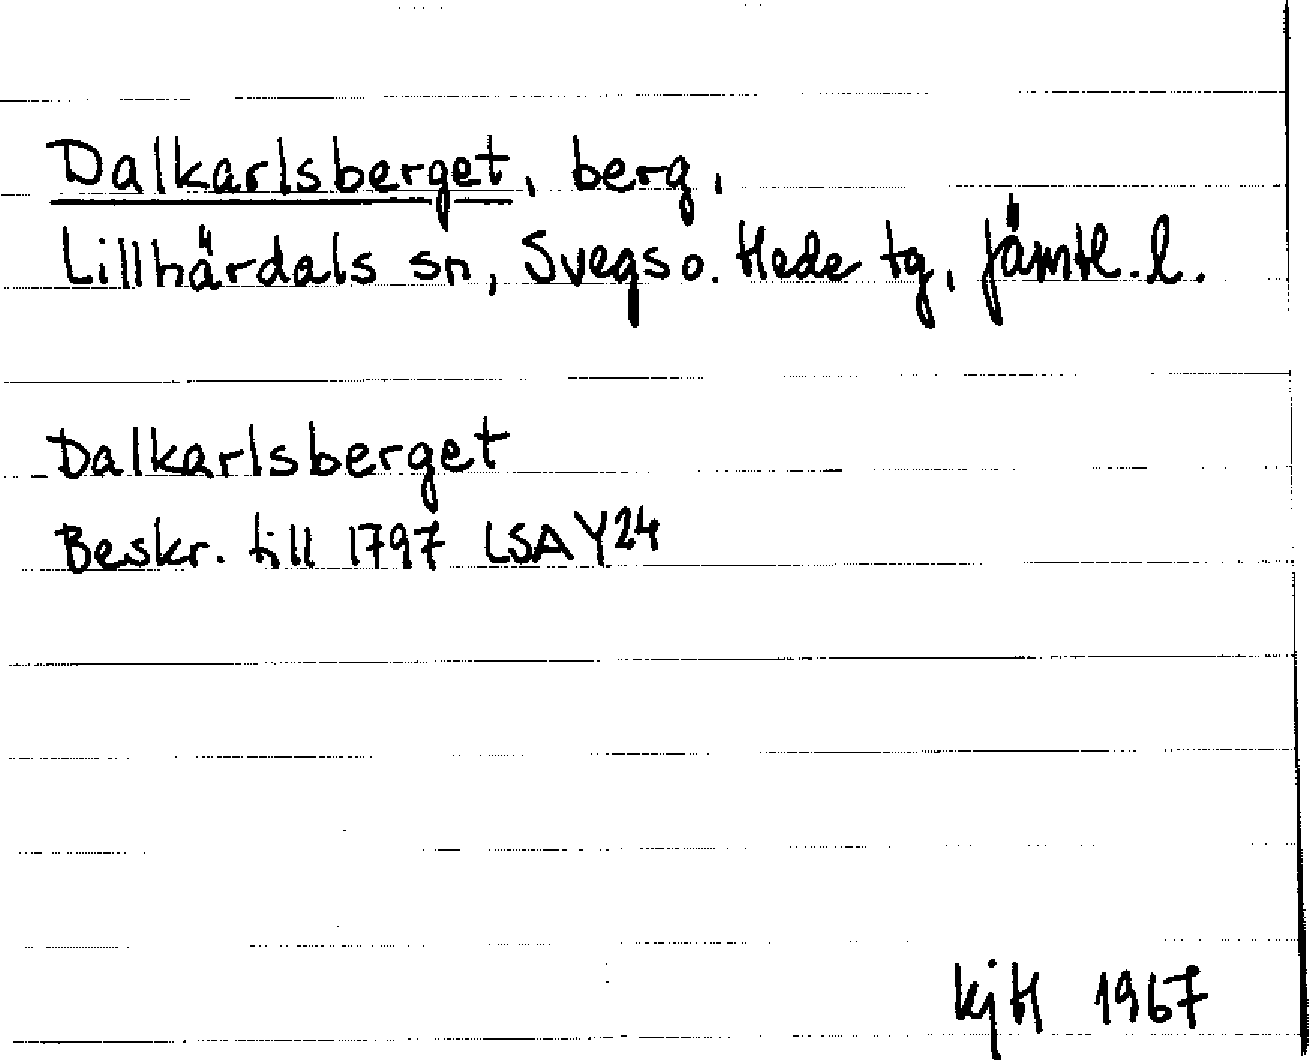 Dalkarlsberget, berg,
Lillhärdals sn, Svegs o. Hede tg, Jämtl. l.
Dalkarlsberget
Beskr. till 1797 LSA Y24
KjH 1967